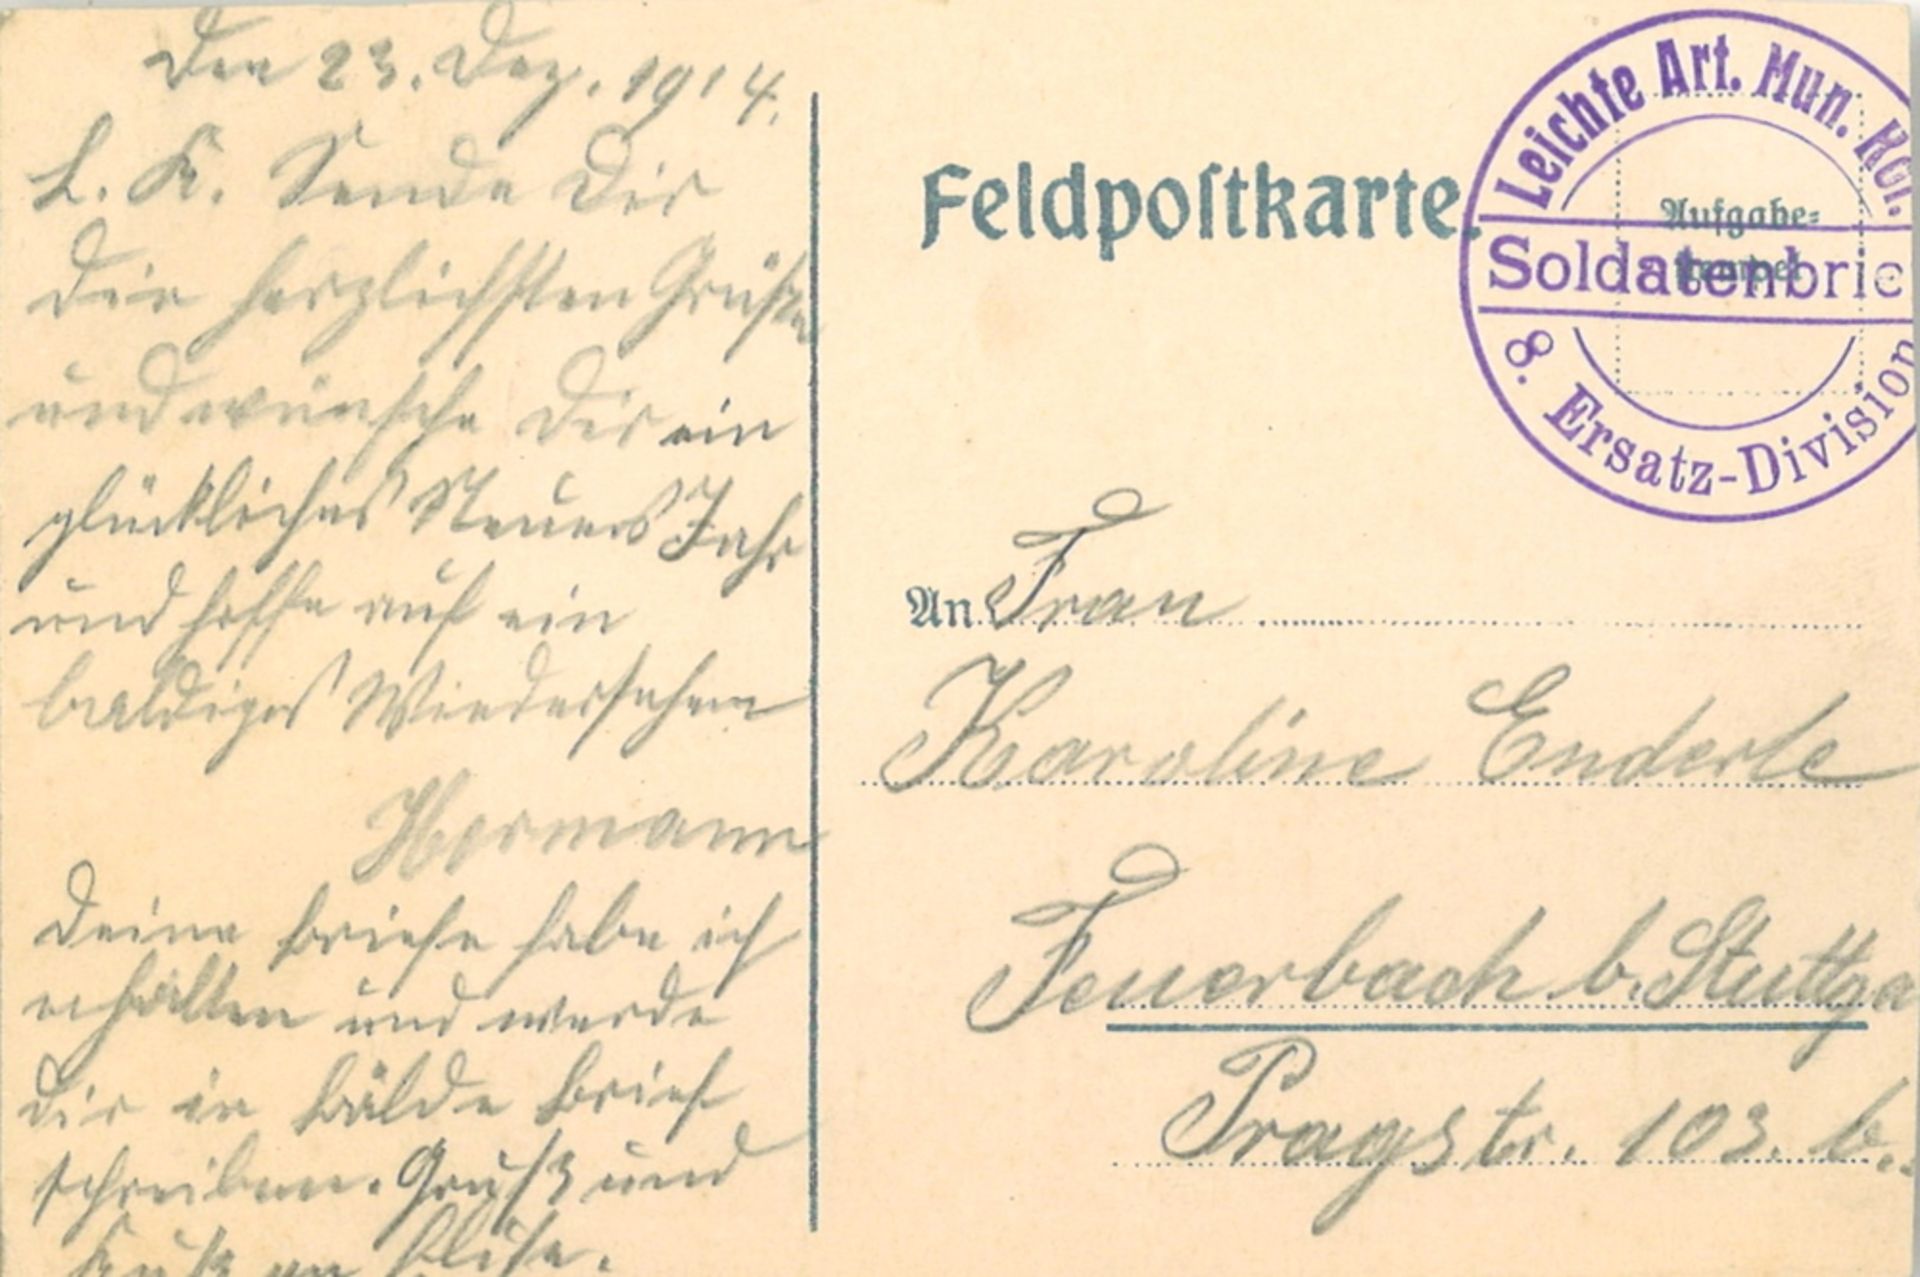 Den 23. Dez. 1914.
L. K. Sende Dir
die herzlichsten Grüße
und wünsche Dir ein
glückliches Neues Jahr
und hoffe auf ein
baldiges Wiedersehen
Hermann
Deine Briefe habe ich
erhalten und werde
Dir in Bälde Brief
schreiben. Gruß und
Kuß an
Feldpoſtkarte.
Leichte Art. Mun. Kol.
Aufgabe-
stempel
Soldatenbrie
8. Ersatz-Division
An Frau
Karoline Enderle
Feuerbach b. Stuttga
Pragstr. 103. b.